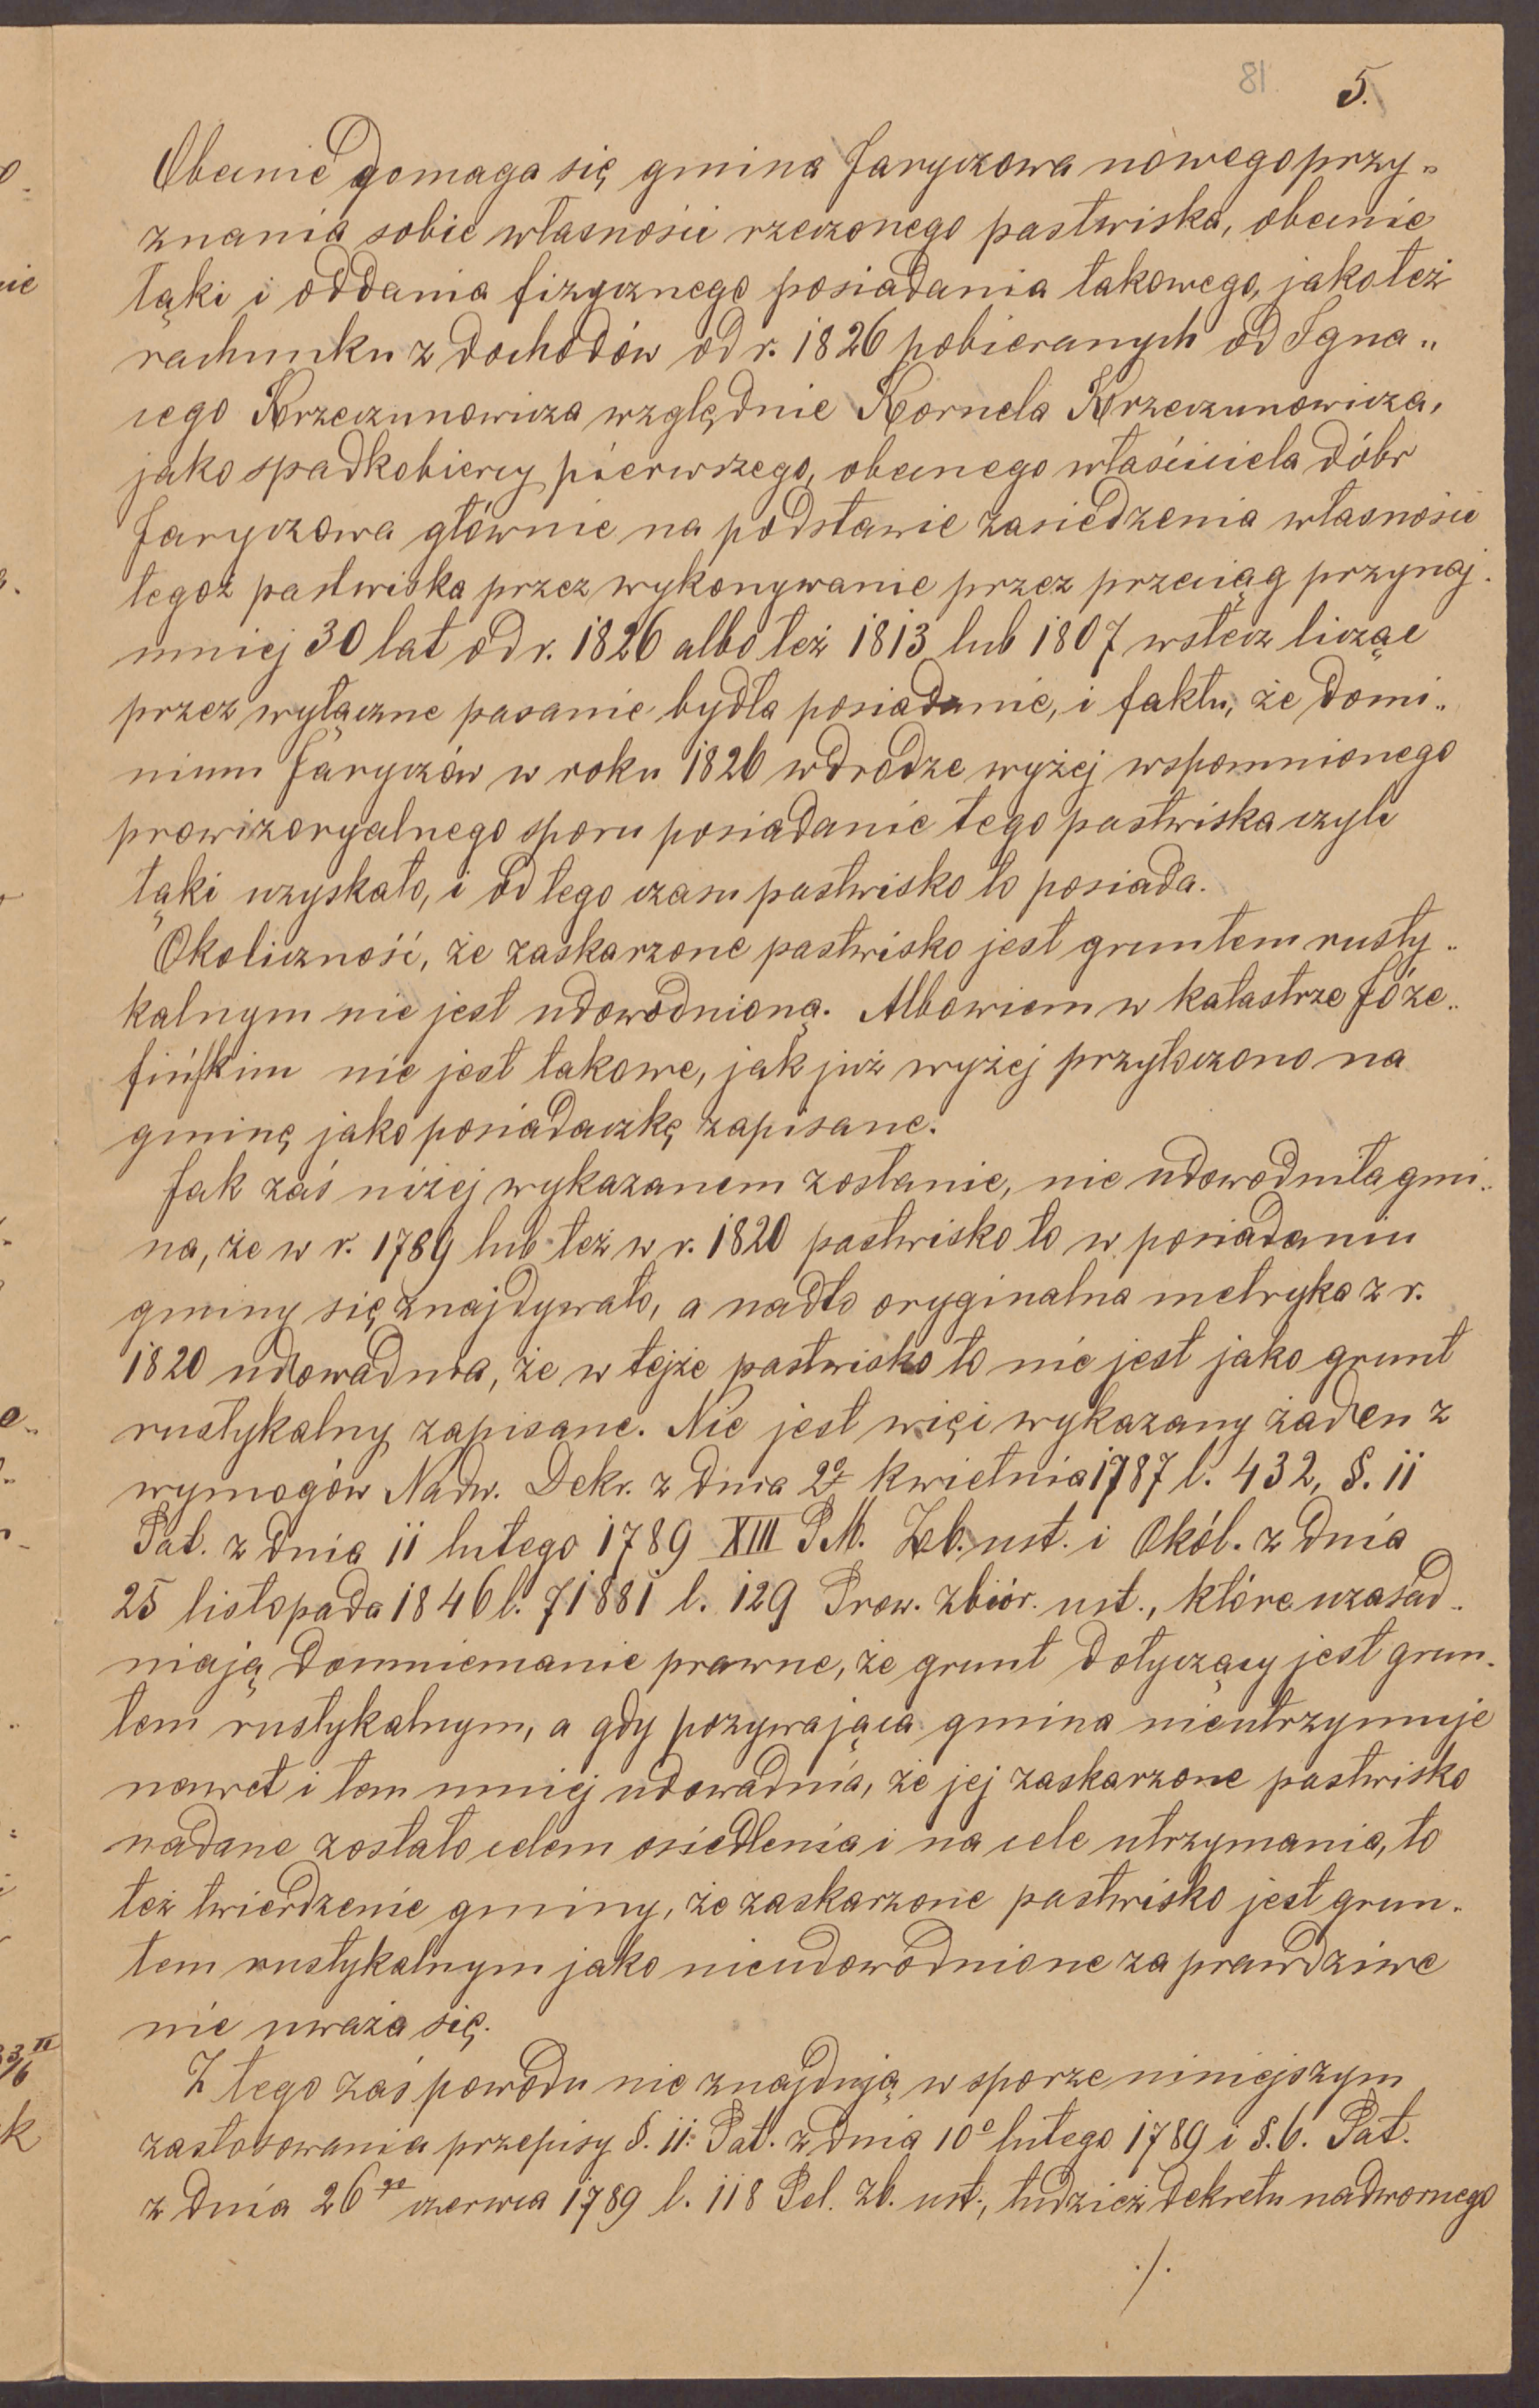 81 5.
Obecnie domaga się gmina Jaryczowa nowego przy„
znania sobie własności rzeczonego pastwiska, obecnie
łąki i oddania fizycznego posiadania takowego, jakoteż
rachunku z dochodów od r. 1826 pobieranych od Igna„
cego Krzeczunowicza względnie Kornela Krzeczunowicza,
jako spadkobiercy pierwszego, obecnego właściciela dóbr
Jaryczowa głównie na podstawie zasiedzenia własności
tegoż pastwiska przez wykonywanie przez przeciąg przynaj.
mniej 30 lat od r. 1826 albo też 1813 lub 1807 wstecz licząc
przez wyłączne pasanie bydła posiadanie, i faktu, że domi„
nium Jaryczów w roku 1826 w drodze wyżej wspomnionego
prowizoryalnego sporu posiadanie tego pastwiska czyli
łąki uzyskało, i od tego czasu pastwisko to posiada.
Okoliczność, że zaskarzone pastwisko jest gruntem rusty„
kalnym nie jest udowodnioną. Albowiem w katastrze Józe„
fińskim nie jest takowe, jak już wyżej przytoczono na
gminę jako posiadaczkę zapisane.
Jak zaś niżej wykazanem zostanie, nie udowodniła gmi„
na, że w r. 1789 lub też w r. 1820 pastwisko to w posiadaniu
gminy się znajdywało, a nadto oryginalna metryka z r.
1820 udowadnia, że w tejże pastwisko to nie jest jako grunt
rustykalny zapisane. Nie jest więc wykazany żaden z
wymogów Nadw. Dekr. z dnia kwietnia 1787 l. 432, §. 11
Pat. z dnia 11 lutego 1789 XIII P.M. Zb. ust. i Okól. z dnia
25 listopada 1846 l. 71881 l. 129 Prow. zbiór. ust., które uzasad„
niają domniemanie prawne, że grunt dotyczący jest grun„
tem rustykalnym, a gdy pozywająca gmina nieutrzymuje
nawet i tem mniej udowadnia, że jej zaskarzone pastwisko
nadane zostało celem osiedlenia i na cele utrzymania, to
też twierdzenie gminy, że zaskarzone pastwisko jest grun„
tem rustykalnym jako nieudowodnione za prawdziwe
nie uważa się.
Z tego zaś powodu nie znajdują w sporze niniejszym
zastosowania przepisy §. 11. Pat. z dnia 10º lutego 1789 i §. 6. Pat.
z dnia 26go czerwca 1789 l. 118 Pel. Zb. ust., tudzież dekretu nadwornego
./.